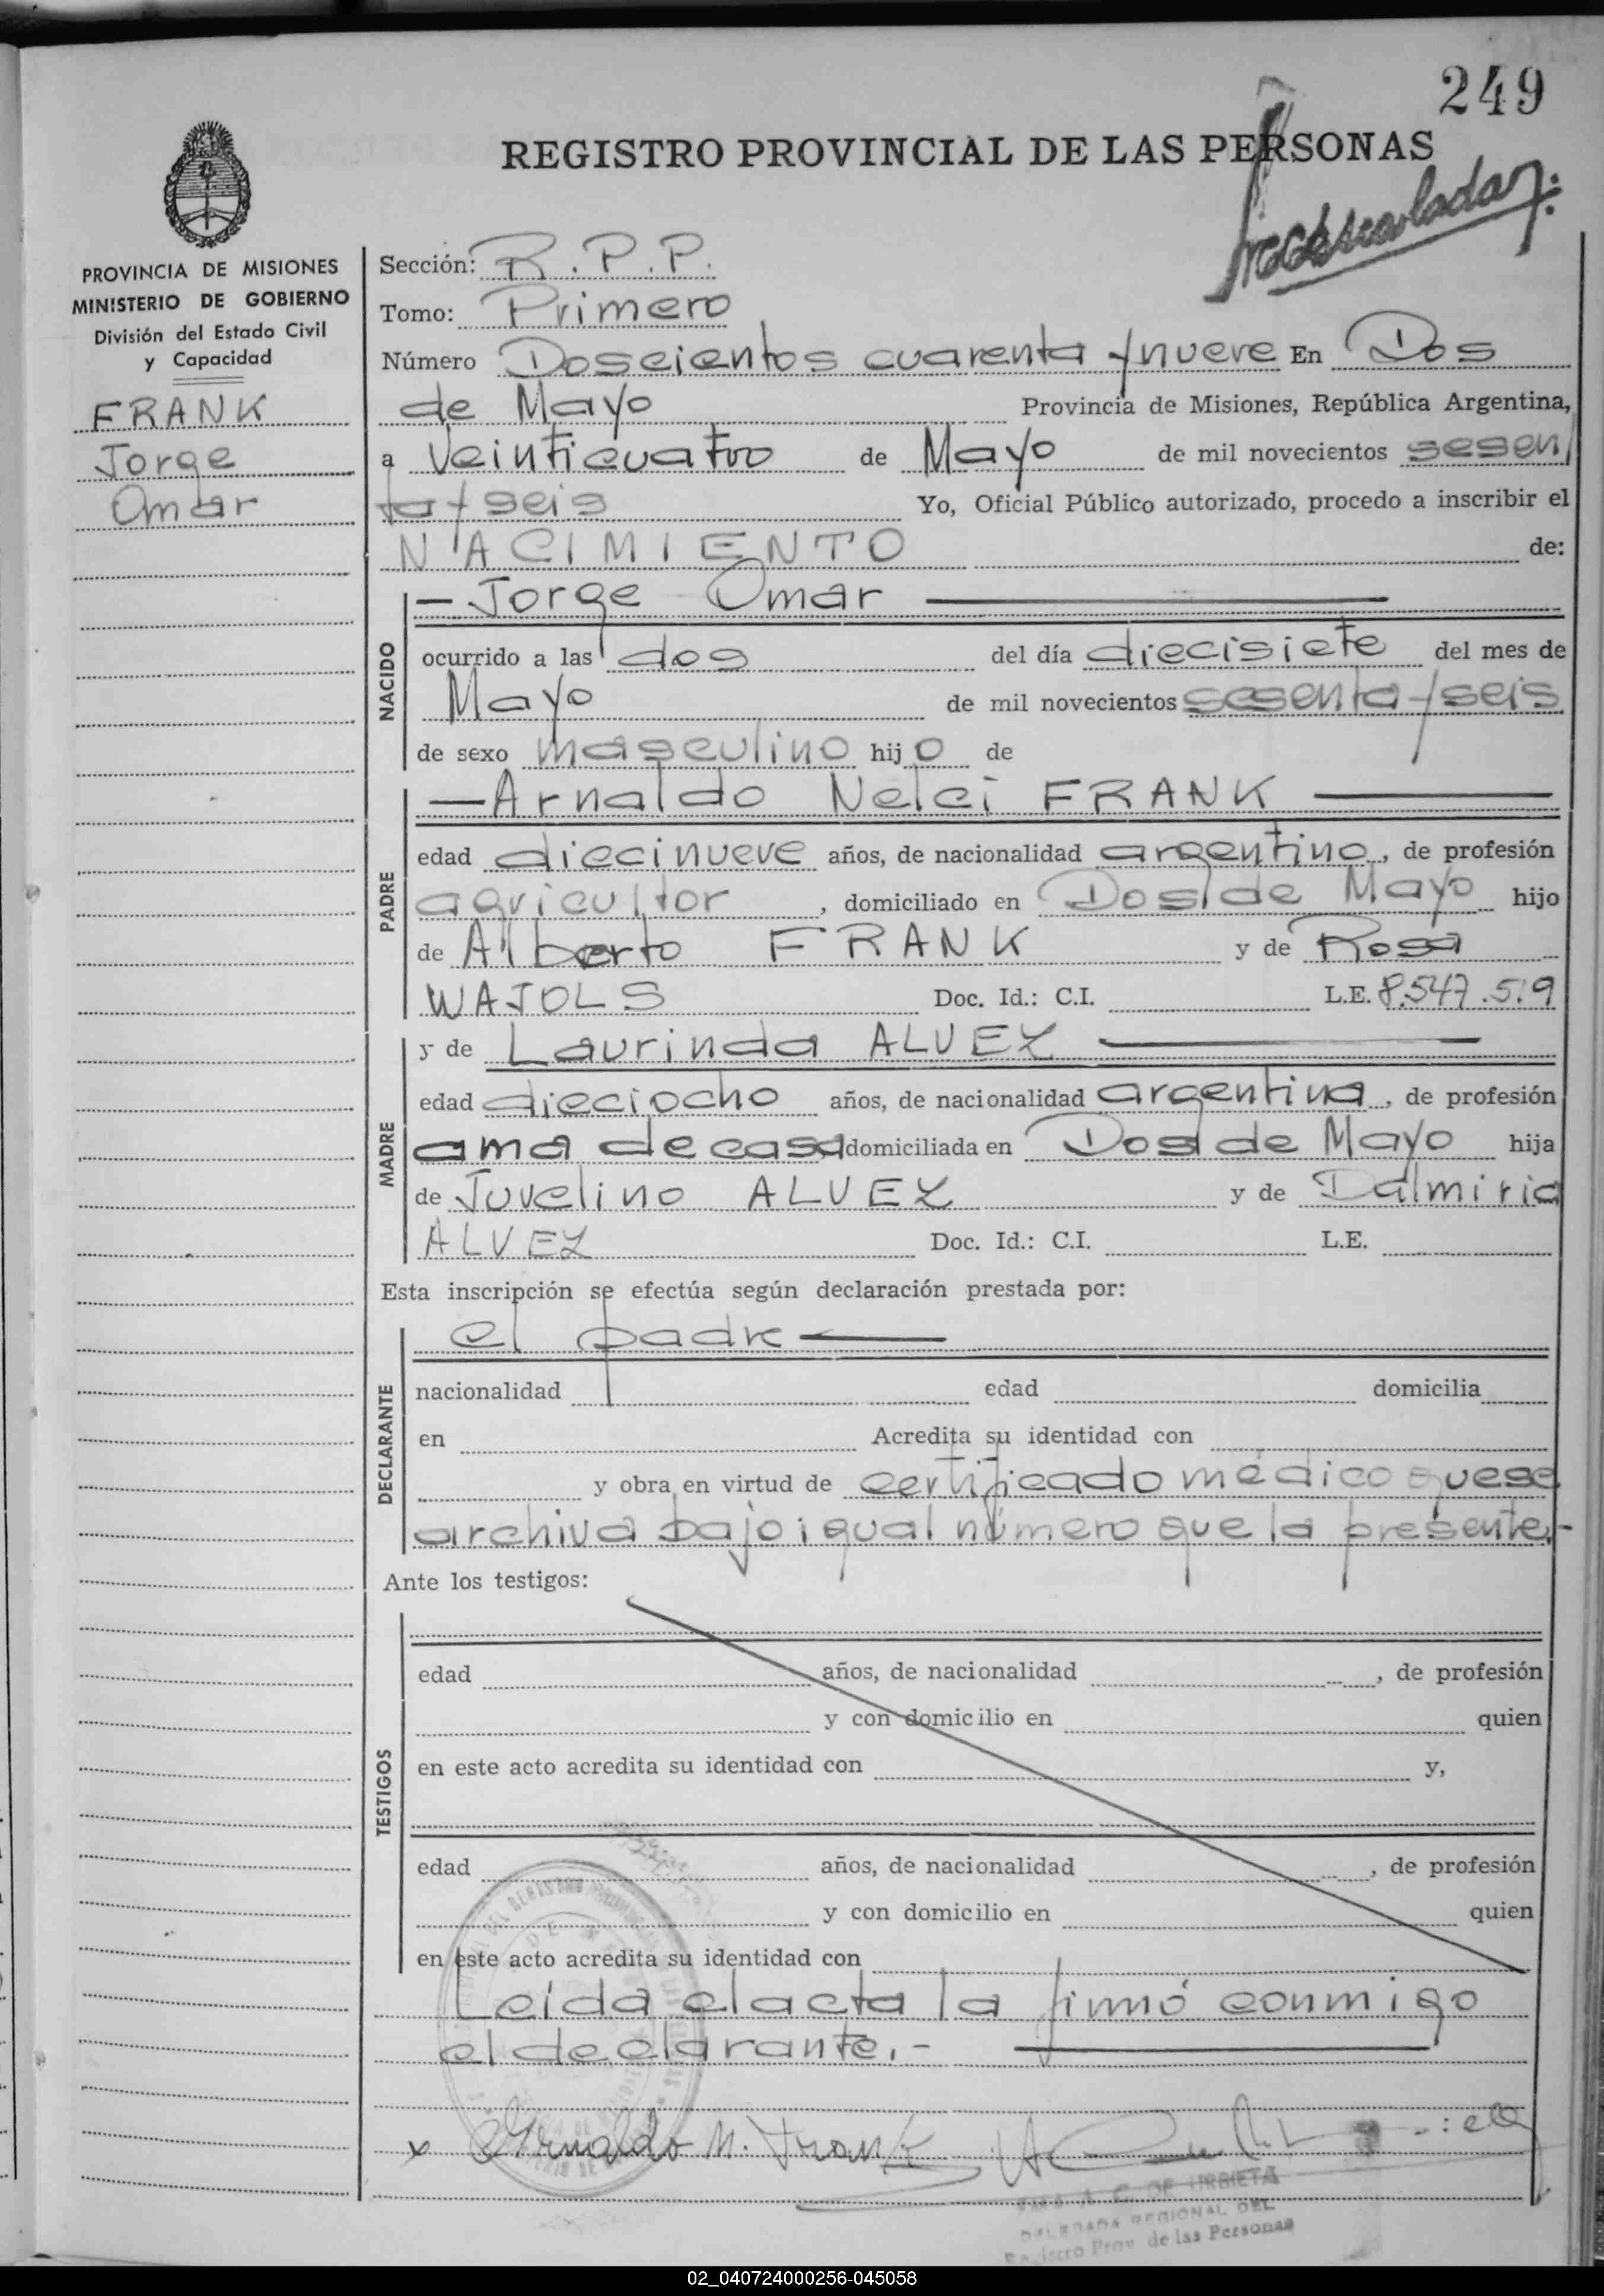 249
REGISTRO PROVINCIAL DE LAS PERSONAS
PROVINCIA DE MISIONES
MINISTERIO DE GOBIERNO
División del Estado Civil
y Capacidad
FRANK
Jorge
Omar
Sección: R.P.P.
Tomo: Primero
Número Doscientos cuarenta y nueve En Dos
de Mayo Provincia de Misiones, República Argentina,
a Veinticuatro de Mayo de mil novecientos sesen
ta y seis Yo, Oficial Público autorizado, procedo a inscribir el
NACIMIENTO de:
— Jorge Omar —
NACIDO
ocurrido a las dos del día diecisiete del mes de
Mayo de mil novecientos sesenta y seis
de sexo masculino hijo de
— Arnaldo Nelci FRANK —
PADRE
edad diecinueve años, de nacionalidad argentino, de profesión
agricultor, domiciliado en Dos de Mayo hijo
de Alberto FRANK y de Rosa
WAJOLS Doc. Id.: C.I. L.E. 8.547.519
y de Laurinda ALVEZ —
MADRE
edad dieciocho años, de nacionalidad argentina, de profesión
ama de casa domiciliada en Dos de Mayo hija
de Juvelino ALVEZ y de Dalmiria
ALVEZ Doc. Id.: C.I. L.E.
Esta inscripción se efectúa según declaración prestada por:
el padre —
DECLARANTE
nacionalidad edad domicilia
en Acredita su identidad con
y obra en virtud de certificado médico que se
archiva bajo igual número que la presente.-
Ante los testigos:
TESTIGOS
edad años, de nacionalidad , de profesión
y con domicilio en quien
en este acto acredita su identidad con y,
edad años, de nacionalidad , de profesión
y con domicilio en quien
en este acto acredita su identidad con
Leída el acta la firmó conmigo
el declarante.- —
x Arnaldo N. Frank
A. C. DE URBIETA
DELEGADA REGIONAL DEL
Registro Prov. de las Personas
02_040724000256-045058